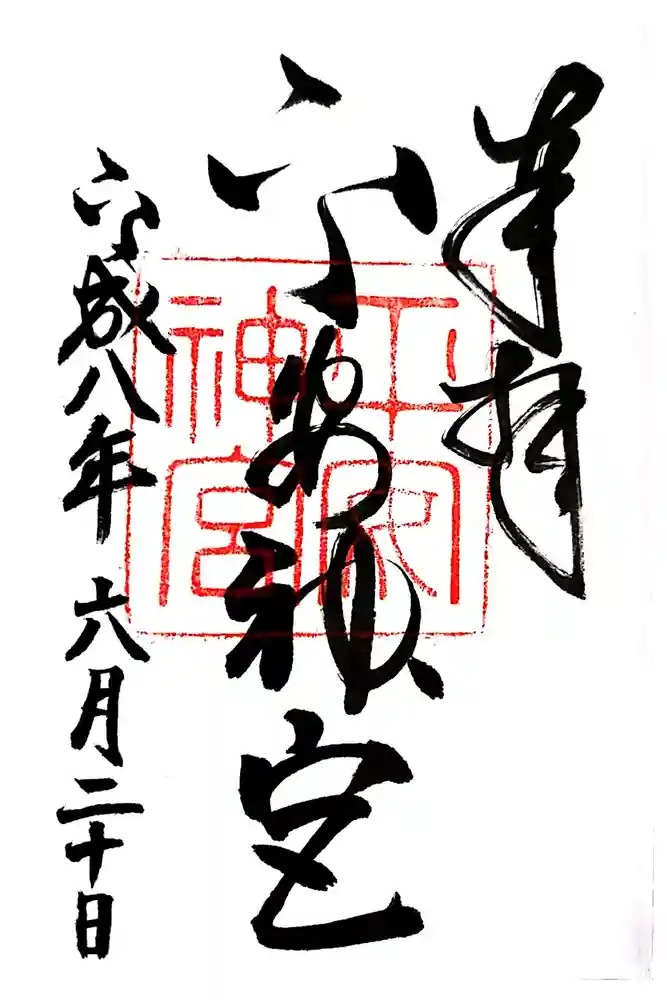 奉拝
平安神宮
平成八年 六月二十日
平安
神宮